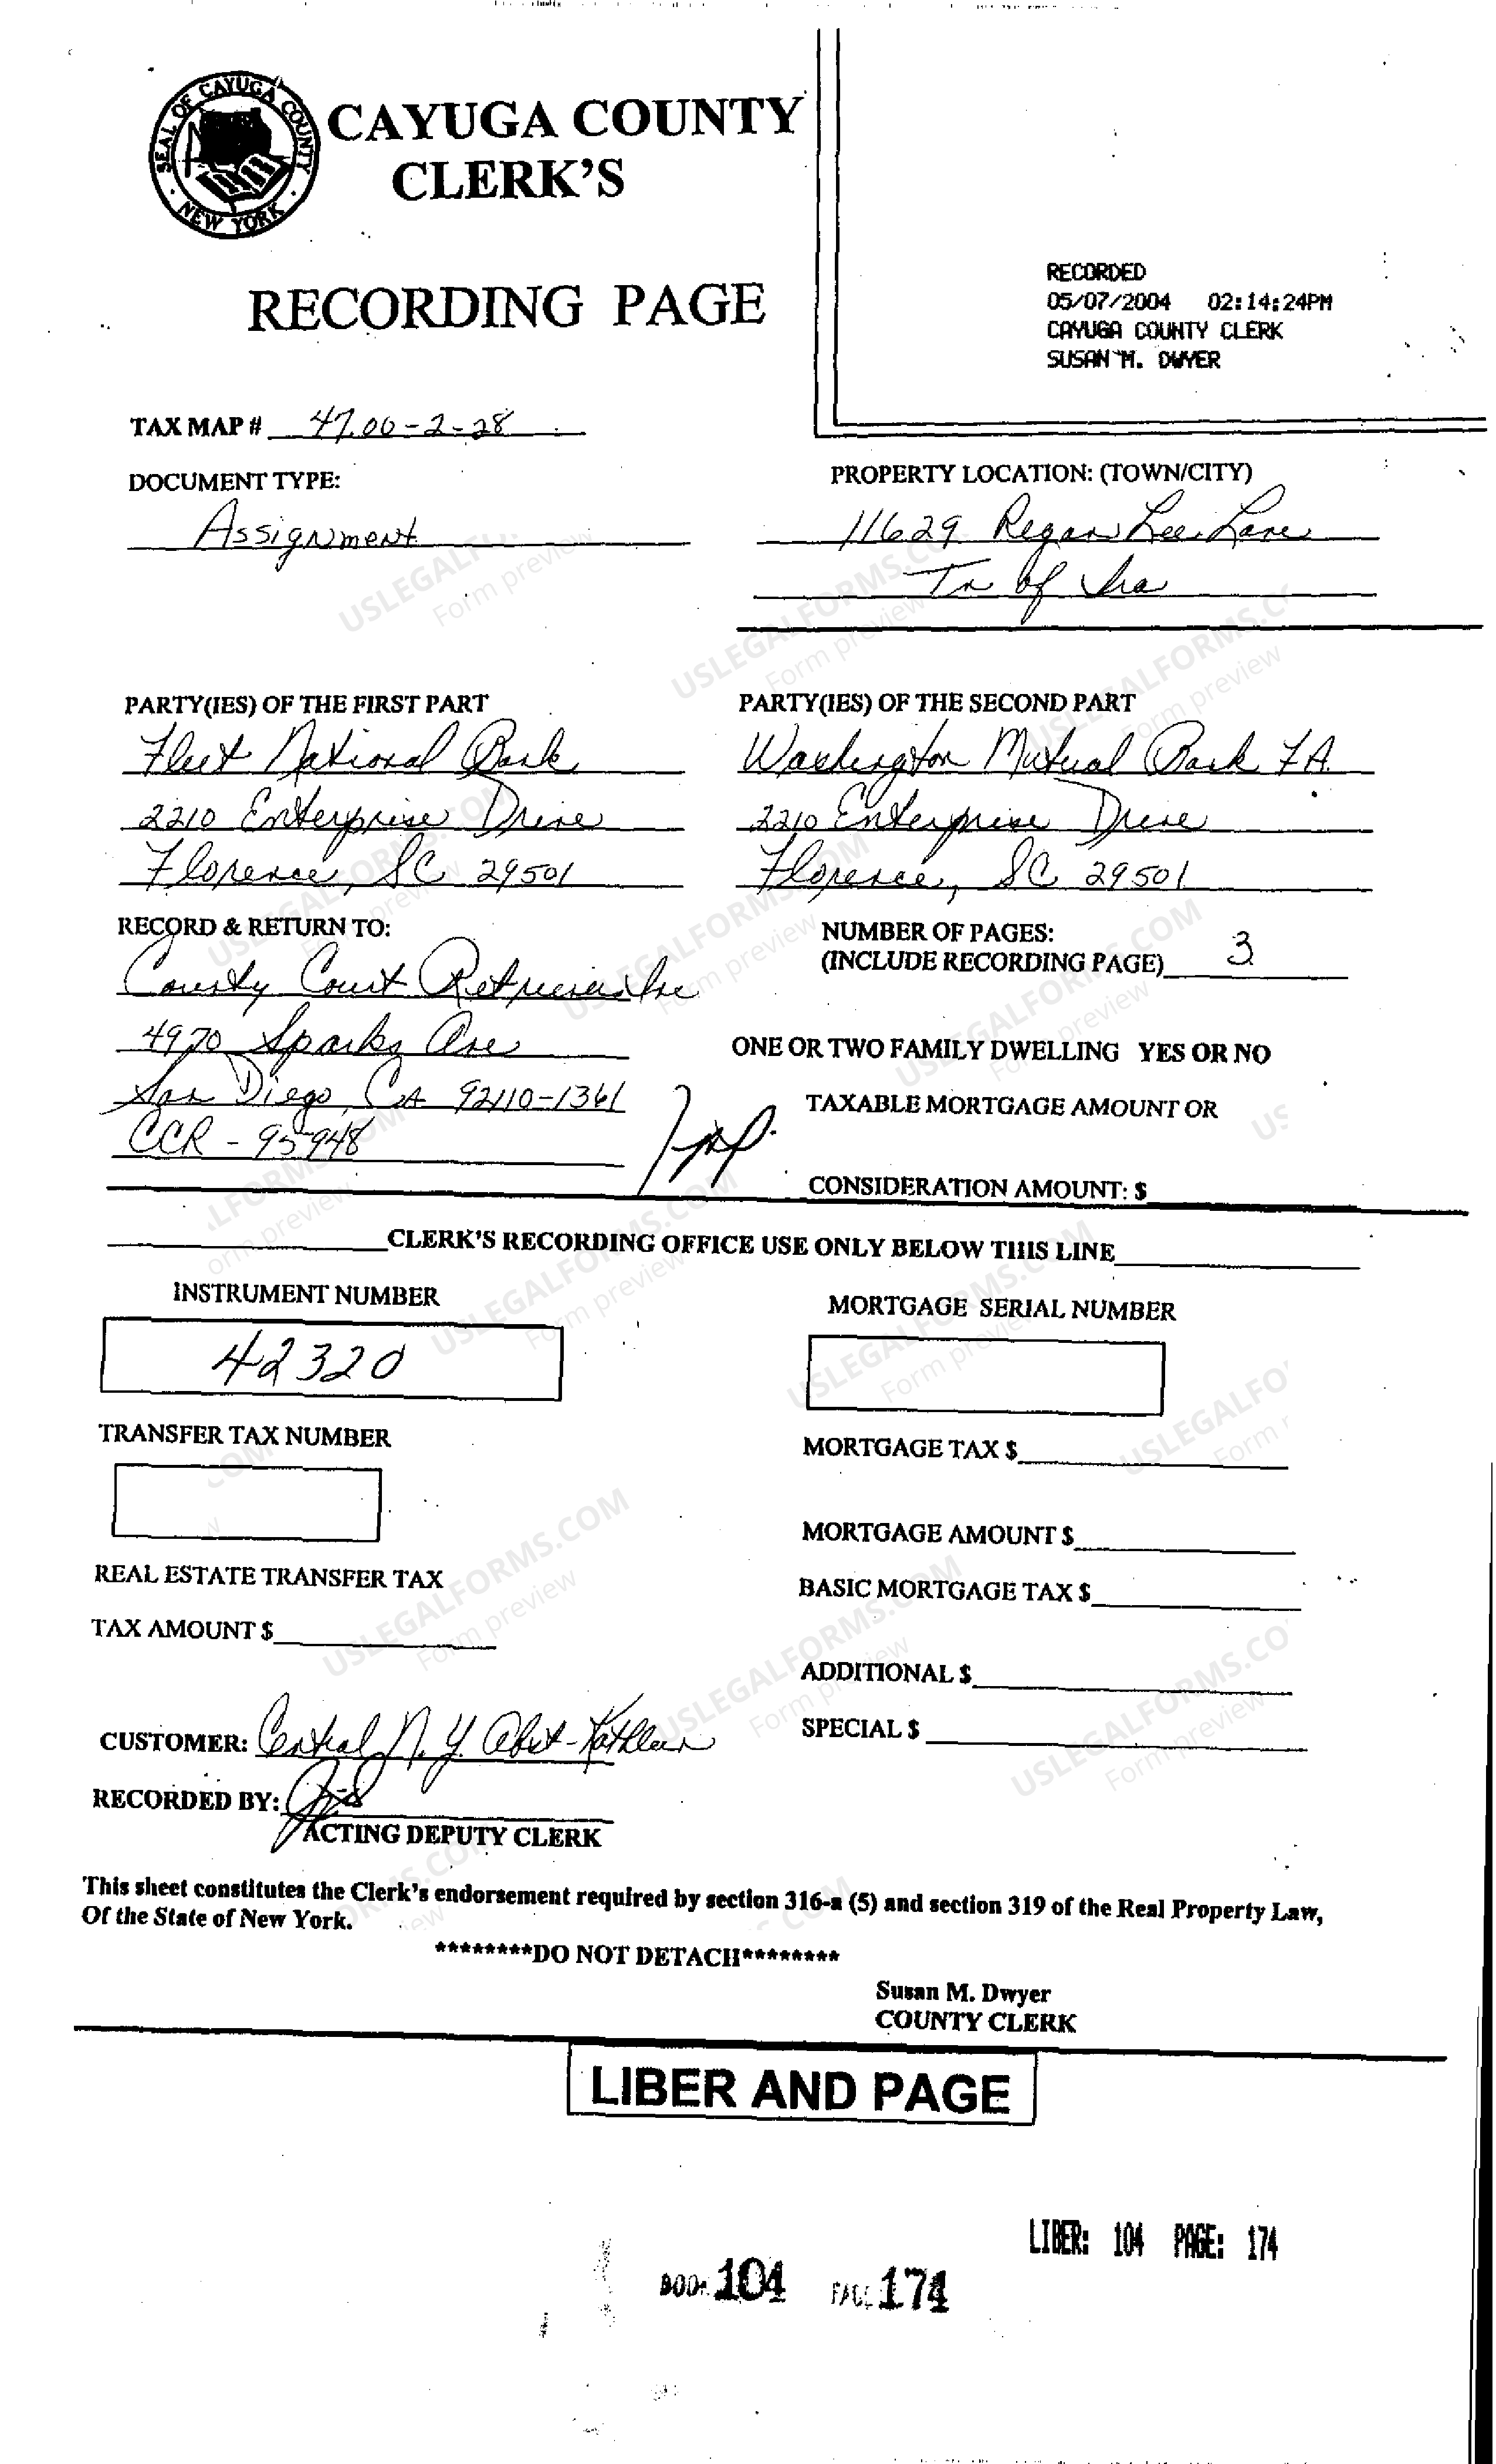 SEAL OF CAYUGA COUNTY
NEW YORK
CAYUGA COUNTY
CLERK'S
RECORDING PAGE
RECORDED
05/07/2004 02:14:24PM
CAYUGA COUNTY CLERK
SUSAN M. DWYER
TAX MAP # 47.00-2-28
DOCUMENT TYPE:
Assignment
PROPERTY LOCATION: (TOWN/CITY)
11629 Regan Lee Lane
Tn of Ira
PARTY(IES) OF THE FIRST PART
Fleet National Bank
2210 Enterprise Drive
Florence, SC 29501
PARTY(IES) OF THE SECOND PART
Washington Mutual Bank FA
2210 Enterprise Drive
Florence, SC 29501
RECORD & RETURN TO:
County Court Retrievers Inc
4970 Sparks Ave
San Diego, CA 92110-1361
CCR - 95948
NUMBER OF PAGES:
(INCLUDE RECORDING PAGE) 3
ONE OR TWO FAMILY DWELLING YES OR NO
TAXABLE MORTGAGE AMOUNT OR
CONSIDERATION AMOUNT: $
CLERK'S RECORDING OFFICE USE ONLY BELOW THIS LINE
INSTRUMENT NUMBER
42320
MORTGAGE SERIAL NUMBER
TRANSFER TAX NUMBER
MORTGAGE TAX $
MORTGAGE AMOUNT $
REAL ESTATE TRANSFER TAX
BASIC MORTGAGE TAX $
TAX AMOUNT $
ADDITIONAL $
CUSTOMER: Central N.Y. Abst-Kathleen
SPECIAL $
RECORDED BY:
ACTING DEPUTY CLERK
This sheet constitutes the Clerk's endorsement required by section 316-a (5) and section 319 of the Real Property Law,
Of the State of New York.
********DO NOT DETACH********
Susan M. Dwyer
COUNTY CLERK
LIBER AND PAGE
LIBER: 104 PAGE: 174
104 174
USLEGALFORMS.COM
Form preview